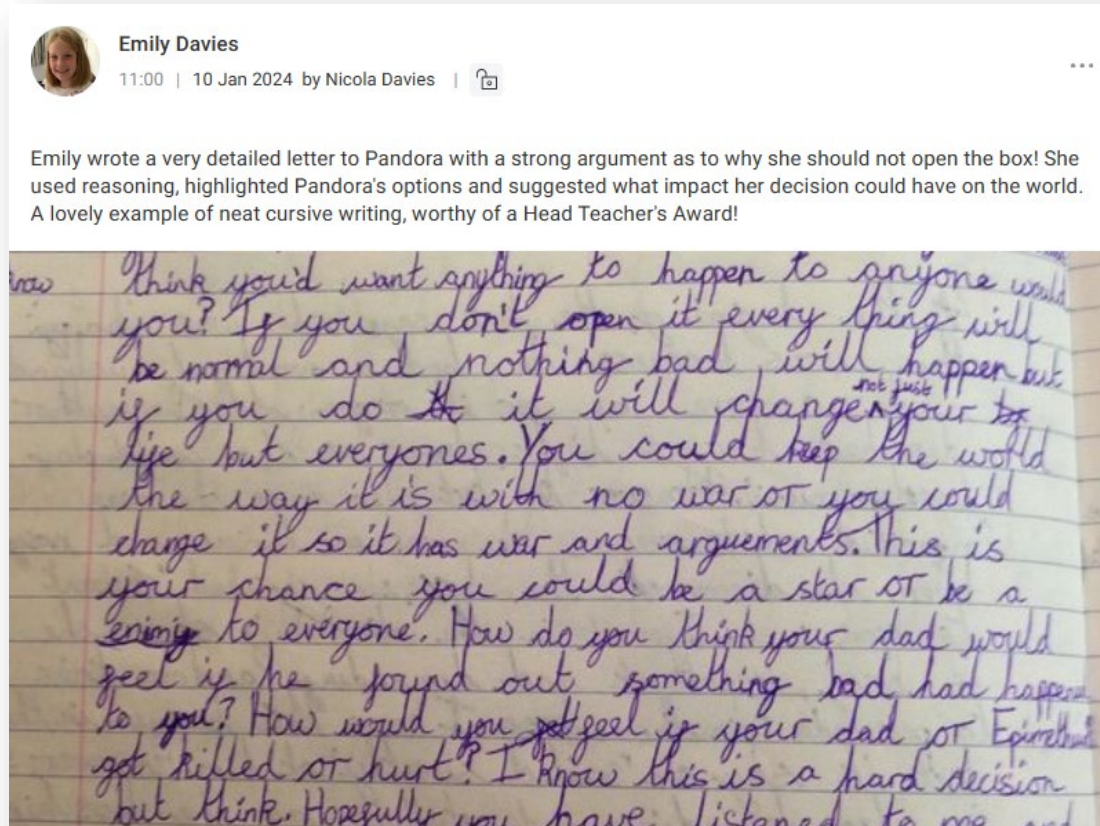 Emily Davies
11:00 | 10 Jan 2024 by Nicola Davies |
Emily wrote a very detailed letter to Pandora with a strong argument as to why she should not open the box! She
used reasoning, highlighted Pandora's options and suggested what impact her decision could have on the world.
A lovely example of neat cursive writing, worthy of a Head Teacher's Award!
think you'd want anything to happen to anyone would
you? If you don't open it every thing will
be normal and nothing bad will happen but
not just
if you do it will change your
life but everyones. You could keep the world
the way it is with no war or you could
change it so it has war and arguements. This is
your chance you could be a star or be a
enimy to everyone. How do you think your dad would
feel if he found out something bad had happened
to you? How would you feel if your dad or
got killed or hurt? I know this is a hard decision
but think. Hopefully you have listened to me and